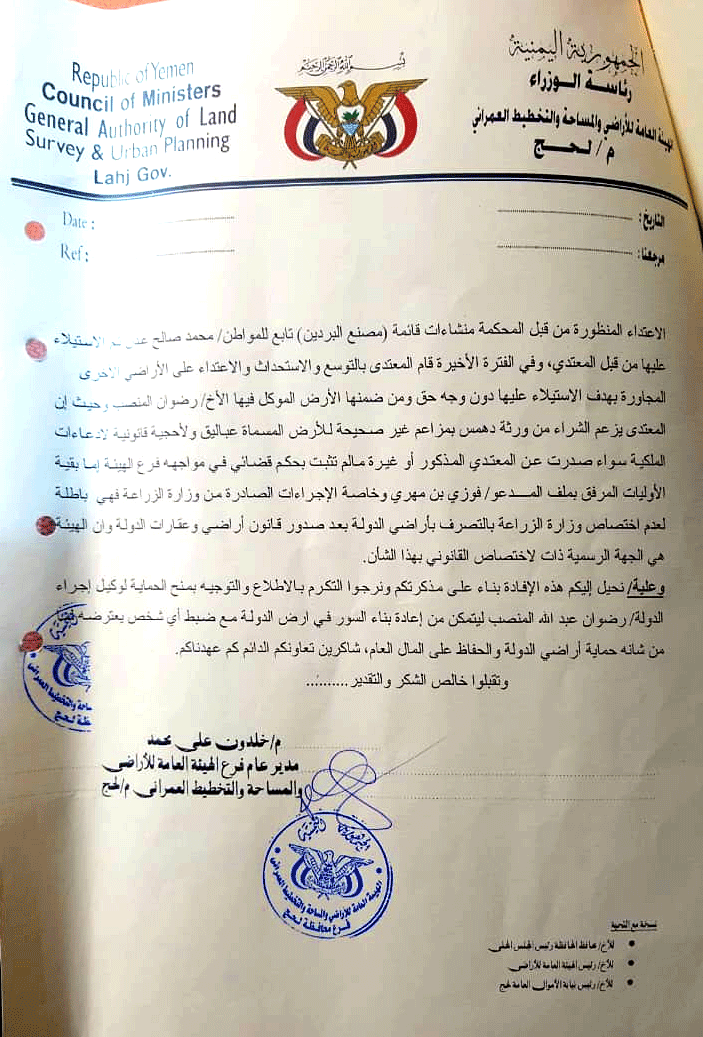 Republic of Yemen
Council of Ministers
General Authority of Land
Survey & Urban Planning
Lahj Gov.
بسم الله الرحمن الرحيم
الجمهورية اليمنية
رئاسة الوزراء
الهيئة العامة للأراضي والمساحة والتخطيط العمراني
م/ لحج
Date :
Ref :
التاريخ :
مرجعنا :
الاعتداء المنظورة من قبل المحكمة منشاءات قائمة (مصنع البردين) تابع للمواطن/ محمد صالح الاستيلاء
عليها من قبل المعتدي، وفي الفترة الأخيرة قام المعتدى بالتوسع والاستحداث والاعتداء على الأراضي الاخرى
المجاورة بهدف الاستيلاء عليها دون وجه حق ومن ضمنها الأرض الموكل فيها الأخ/ رضوان المنصب وحيث إن
المعتدى يزعم الشراء من ورثة دهمس بمزاعم غير صحيحة للأرض المسماة عباليق ولاحجية قانونية لادعاءات
الملكية سواء صدرت عن المعتدي المذكور أو غيرة مالم تثبت بحكم قضائي في مواجهه فرع الهيئة إما بقية
الأوليات المرفق بملف المدعو/ فوزي بن مهري وخاصة الإجراءات الصادرة من وزارة الزراعة فهي باطلة
لعدم اختصاص وزارة الزراعة بالتصرف بأراضي الدولة بعد صدور قانون أراضي وعقارات الدولة وان الهيئة
هي الجهة الرسمية ذات لاختصاص القانوني بهذا الشأن.
وعلية/ نحيل إليكم هذه الإفادة بناء على مذكرتكم ونرجوا التكرم بالاطلاع والتوجيه بمنح الحماية لوكيل إجراء
الدولة/ رضوان عبد الله المنصب ليتمكن من إعادة بناء السور في ارض الدولة مع ضبط أي شخص يعترضه
من شانه حماية أراضي الدولة والحفاظ على المال العام، شاكرين تعاونكم الدائم كم عهدناكم.
وتقبلوا خالص الشكر والتقدير..........
م/خلدون علي محمد
مدير عام فرع الهيئة العامة للأراضي
والمساحة والتخطيط العمراني م/لحج
الجمهورية اليمنية
الهيئة العامة للأراضي والمساحة والتخطيط العمراني
فرع محافظة لحج
نسخة مع التحية
للأخ/ محافظ المحافظة رئيس المجلس المحلي
للأخ/ رئيس الهيئة العامة للأراضي
للأخ/ رئيس نيابة الأموال العامة لحج